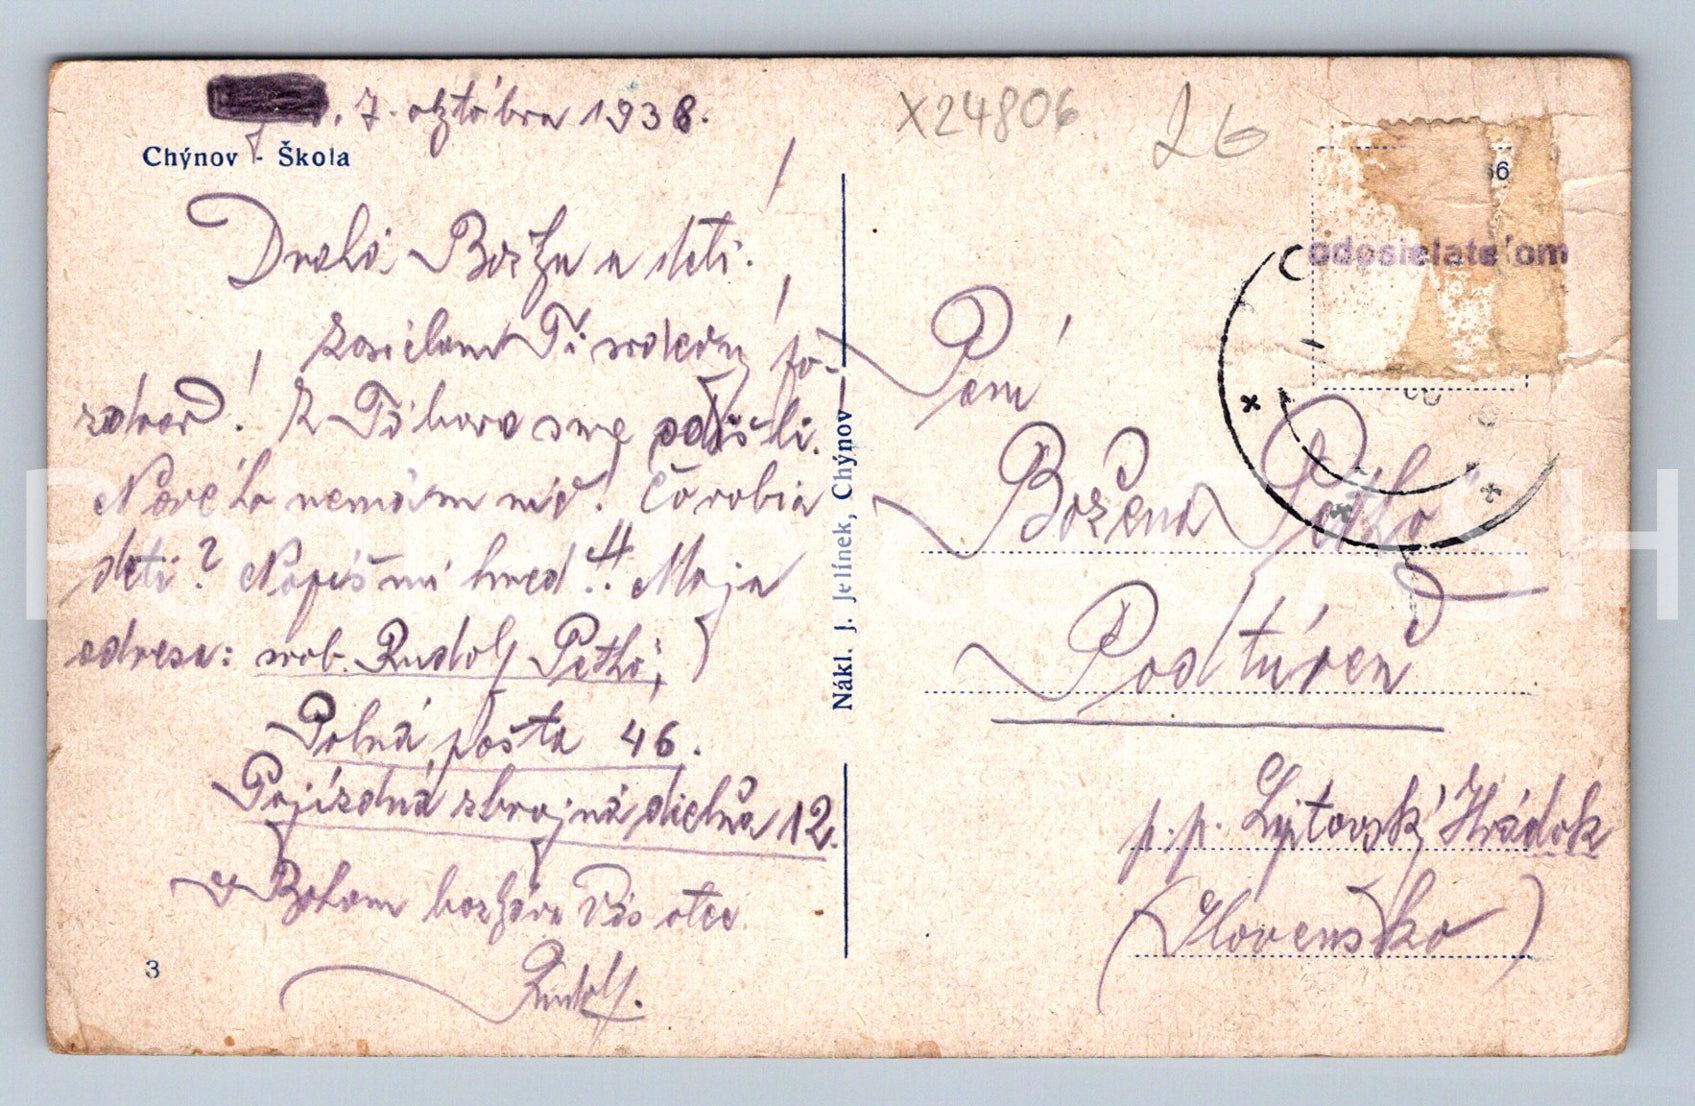 7. októbra 1938.
Chýnov - Škola
Drahá Božka a deti!
Zasielam Ti srdečný po-
zdrav! Z Tábora sme odišli.
Nového nemám nič! Čo robia
deti? Napíš mi hneď!! Moja
adresa: srob. Rudolf Pethö,
Polná pošta 46.
Pojízdná zbrojná dielňa 12.
S Bohom bozkáva Vás otec
Rudolf.
3
Nákl. J. Jelínek, Chýnov
X24806
26
odosielateľom
Paní
Božena Pethö
Podtúreň
p.p. Liptovský Hrádok
(Slovensko)